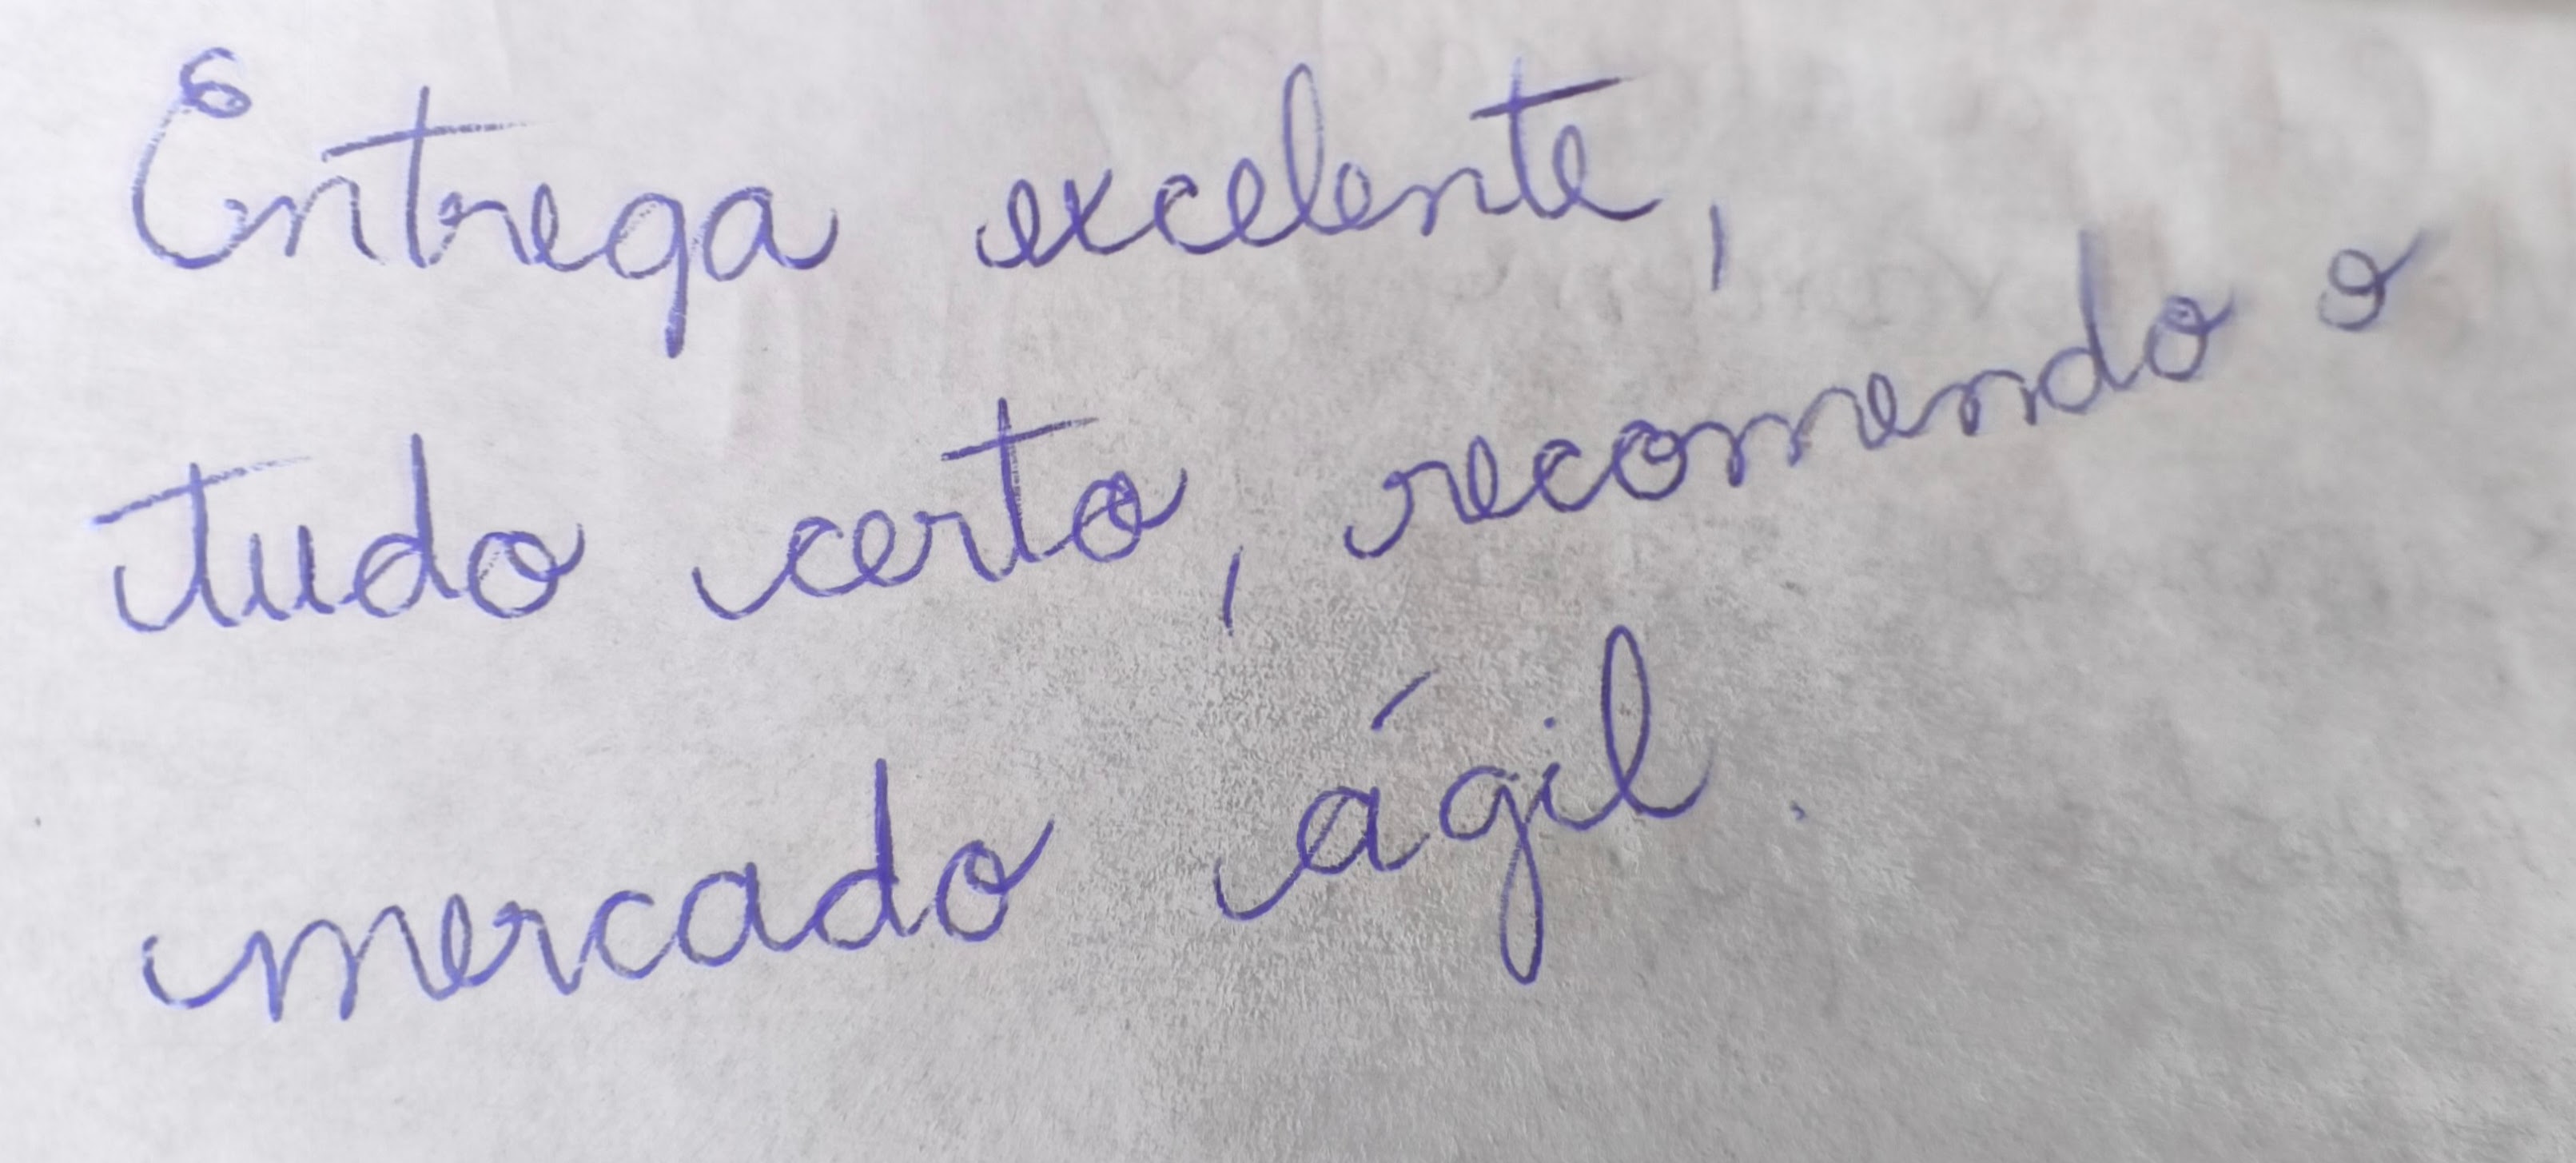 Entrega excelente,
tudo certo, recomendo o
mercado ágil.